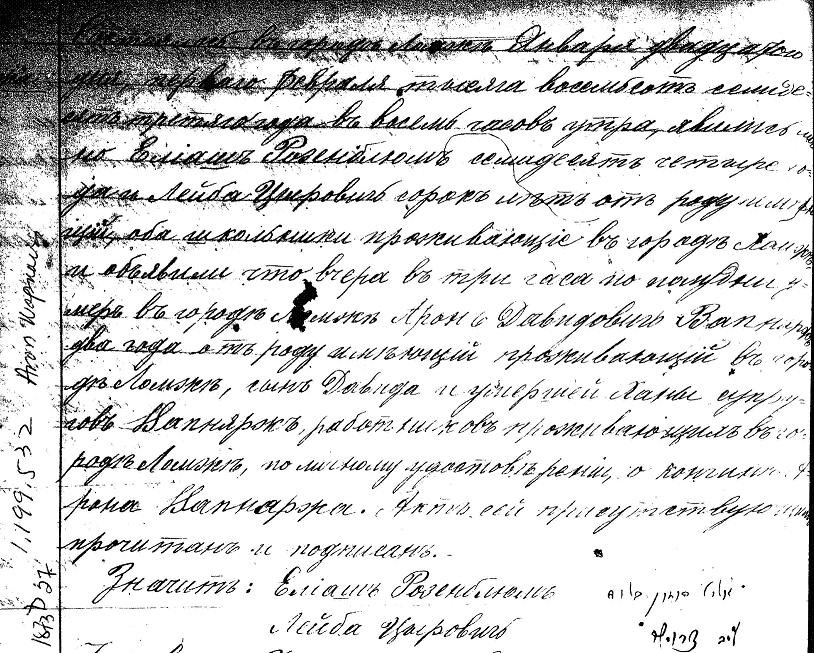 Состоялось въ городѣ Ломжѣ Января двадцатаго
дня, перваго Февраля тысяча восемьсотъ семьде-
сятъ третяго года въ восемь часовъ утра, явились
но Еліашъ Розенблюмъ семидесять четыре го-
да и Лейба Цыровичъ сорокъ лѣтъ отъ роду имѣю
щій, оба школьники проживающіе въ городѣ Ломжѣ
и объявили что вчера въ три часа по полудни у-
меръ въ городѣ Ломжѣ Аронъ Давидовичъ Вапняржъ
два года отъ роду имѣющій проживающій въ горо
дѣ Ломжѣ, сынъ Давида и умершей Ханы супру-
говъ Вапняржъ, работниковъ проживающихъ въ го-
родѣ Ломжѣ, по личному удостовѣренію, о кончинѣ А-
рона Вапнаржа. Актъ сей присутствующимъ
прочитанъ и подписанъ.
Значитъ: Еліашъ Розенблюмъ
Лейба Цыровичъ
1.199.532
1873 D 27